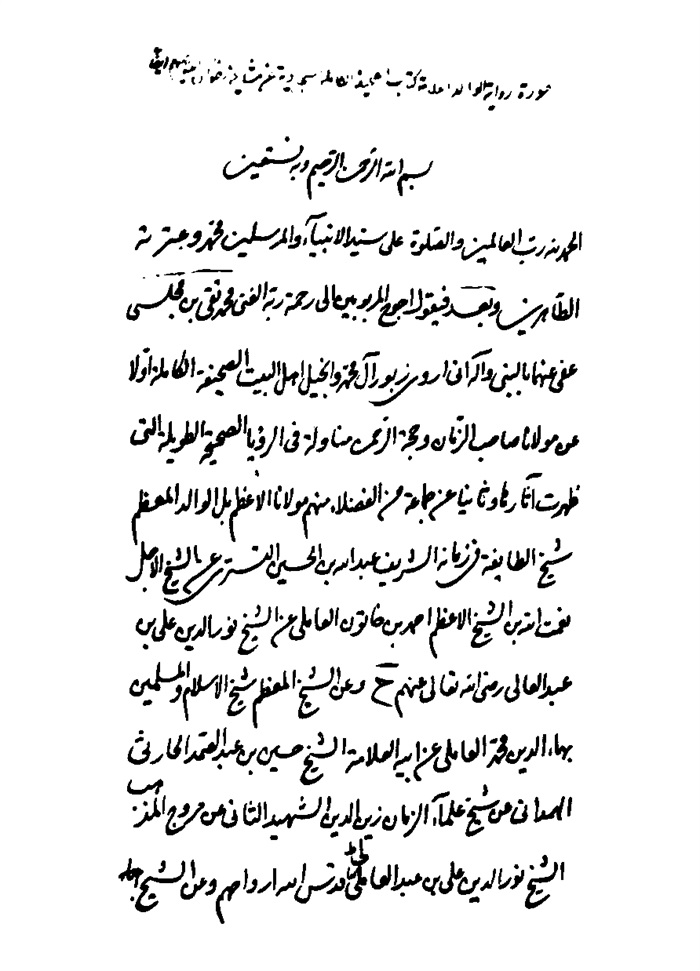 صورة رواية الوالد العلامة كتاب الصحيفة الكاملة السجادية عن مشايخه رضوان الله عليهم
بسم الله الرحمن الرحيم وبه نستعين
الحمد لله رب العالمين والصلوة على سيد الانبيآء والمرسلين محمد وعترته
الطاهرين وبعد فيقول احوج المربوبين الى رحمة ربه الغنى محمد تقى بن مجلسى
عفى عنهما بالنبى وآله انى اروى زبور آل محمد وانجيل اهل البيت الصحيفة الكاملة اولا
عن مولانا صاحب الزمان وحجة الرحمن مناولة فى الرؤيا الصحيحة الطويلة التى
ظهرت آثارها وثانيا عن جماعة من الفضلاء منهم مولانا الاعظم بل الوالد المعظم
شيخ الطايفة فى زمانه الشريف عبد الله بن الحسين التسترى عن الشيخ الاجل
نعمت الله بن الشيخ الاعظم احمد بن خاتون العاملى عن الشيخ نور الدين على بن
عبد العالى رضى الله تعالى عنهم ح وعن الشيخ المعظم شيخ الاسلام والمسلمين
بهاء الدين محمد العاملى عن ابيه العلامة الشيخ حسين بن عبد الصمد الحارثى
الهمدانى عن شيخ علمآء الزمان زين الدين الشهيد الثانى عن مروج المذهب
الشيخ نور الدين على بن عبد العالى قدس الله ارواحهم وعن الشيخ